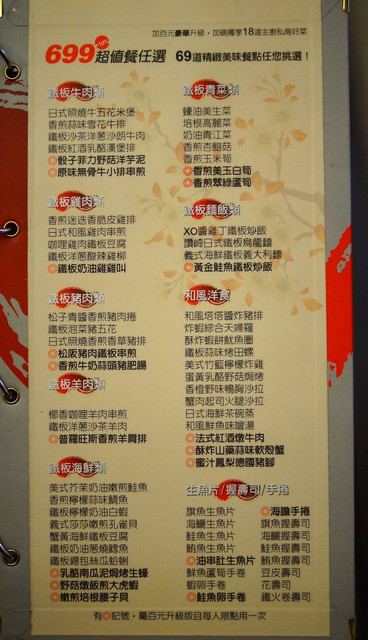 加百元豪華升級，加碼獨享18道主廚私房好菜
699 超值餐任選 69道精緻美味餐點任您挑選！
鐵板牛肉類
日式照燒牛五花米堡
香煎蒜味雪花牛排
鐵板沙茶洋蔥沙朗牛肉
鐵板紅酒乳酪漢堡排
◎骰子菲力野菇洋芋泥
◎原味無骨牛小排串煎
鐵板雞肉類
香煎迷迭香脆皮雞排
日式和風雞肉串煎
咖哩雞肉鐵板豆腐
鐵板洋蔥酸辣雞柳
◎鐵板奶油雞雞叫
鐵板豬肉類
松子青醬香煎豬肉捲
鐵板泡菜豬五花
日式照燒香煎香草豬排
◎松阪豬肉鐵板串煎
◎香煎牛奶蒜頭豬肥腸
鐵板羊肉類
椰香咖哩羊肉串煎
鐵板洋蔥沙茶羊肉
◎普羅旺斯香煎羊肩排
鐵板海鮮類
美式芥茉奶油嫩煎鮭魚
香煎檸檬蒜味鯛魚
鐵板檸檬奶油白蝦
義式莎莎嫩煎孔雀貝
蟹黃海鮮鐵板豆腐
鐵板奶油蔥燒鱈魚
鐵板錫包絲瓜蛤蜊
◎乳酪南瓜泥焗烤生蠔
◎野菇燉飯煎大虎蝦
◎嫩煎培根腰子貝
鐵板青菜類
蠔油美生菜
培根高麗菜
奶油青江菜
香煎杏鮑菇
香煎玉米筍
◎香煎美玉白筍
◎香煎翠綠蘆筍
鐵板麵飯類
XO醬雞丁鐵板炒飯
讚岐日式鐵板烏龍麵
義式海鮮鐵板義大利麵
◎黃金鮭魚鐵板炒飯
和風洋食
和風塔塔醬炸豬排
炸蝦綜合天婦羅
酥炸蝦餅魷魚圈
鐵板蒜味烤田螺
美式竹籃檸檬炸雞
蜜黃乳酪野菇焗烤
香橙野味鴨胸沙拉
蟹肉起司火腿沙拉
日式海鮮茶碗蒸
和風鮮魚味噌湯
◎法式紅酒燉牛肉
◎酥炸山藥蒜味軟殼蟹
◎蜜汁鳳梨德國豬腳
生魚片/握壽司/手捲
旗魚生魚片
海鱺生魚片
鮭魚生魚片
鮪魚生魚片
◎油串肚生魚片
鮮魚蘆筍手卷
蝦卵手卷
◎鮭魚卵手卷
◎海膽手卷
旗魚握壽司
海鱺握壽司
鮭魚握壽司
鮪魚握壽司
豆皮壽司
花壽司
鐵火卷壽司
有◎記號，屬百元升級版且每人限點用一次